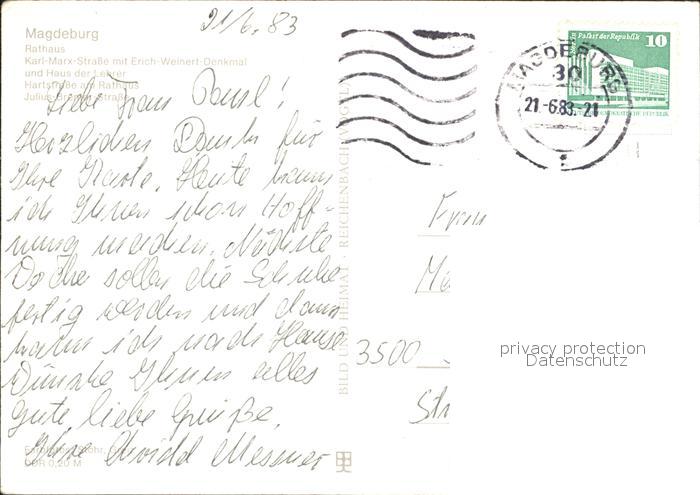 Magdeburg
Rathaus
Karl-Marx-Straße mit Erich-Weinert-Denkmal
und Haus der Lehrer
Hartstraße am Rathaus
Julius-Bremer-Straße
21/6.83
Liebe Frau
Herzlichen Dank für
Ihre Karte. Heute kann
ich Ihnen schon Hoff-
nung machen. Nächste
Woche sollen die Schuhe
fertig werden und dann
kann ich nach Hause
Wünsche Ihnen alles
Gute, liebe Grüße,
Ihre Messner
DDR 0,20 M
BILD UND HEIMAT · REICHENBACH (VOGTL)
Palast der Republik 10
DEUTSCHE DEMOKRATISCHE REPUBLIK
MAGDEBURG
30
21.-6.83.-21
Frau
Me
3500
Str
privacy protection
Datenschutz